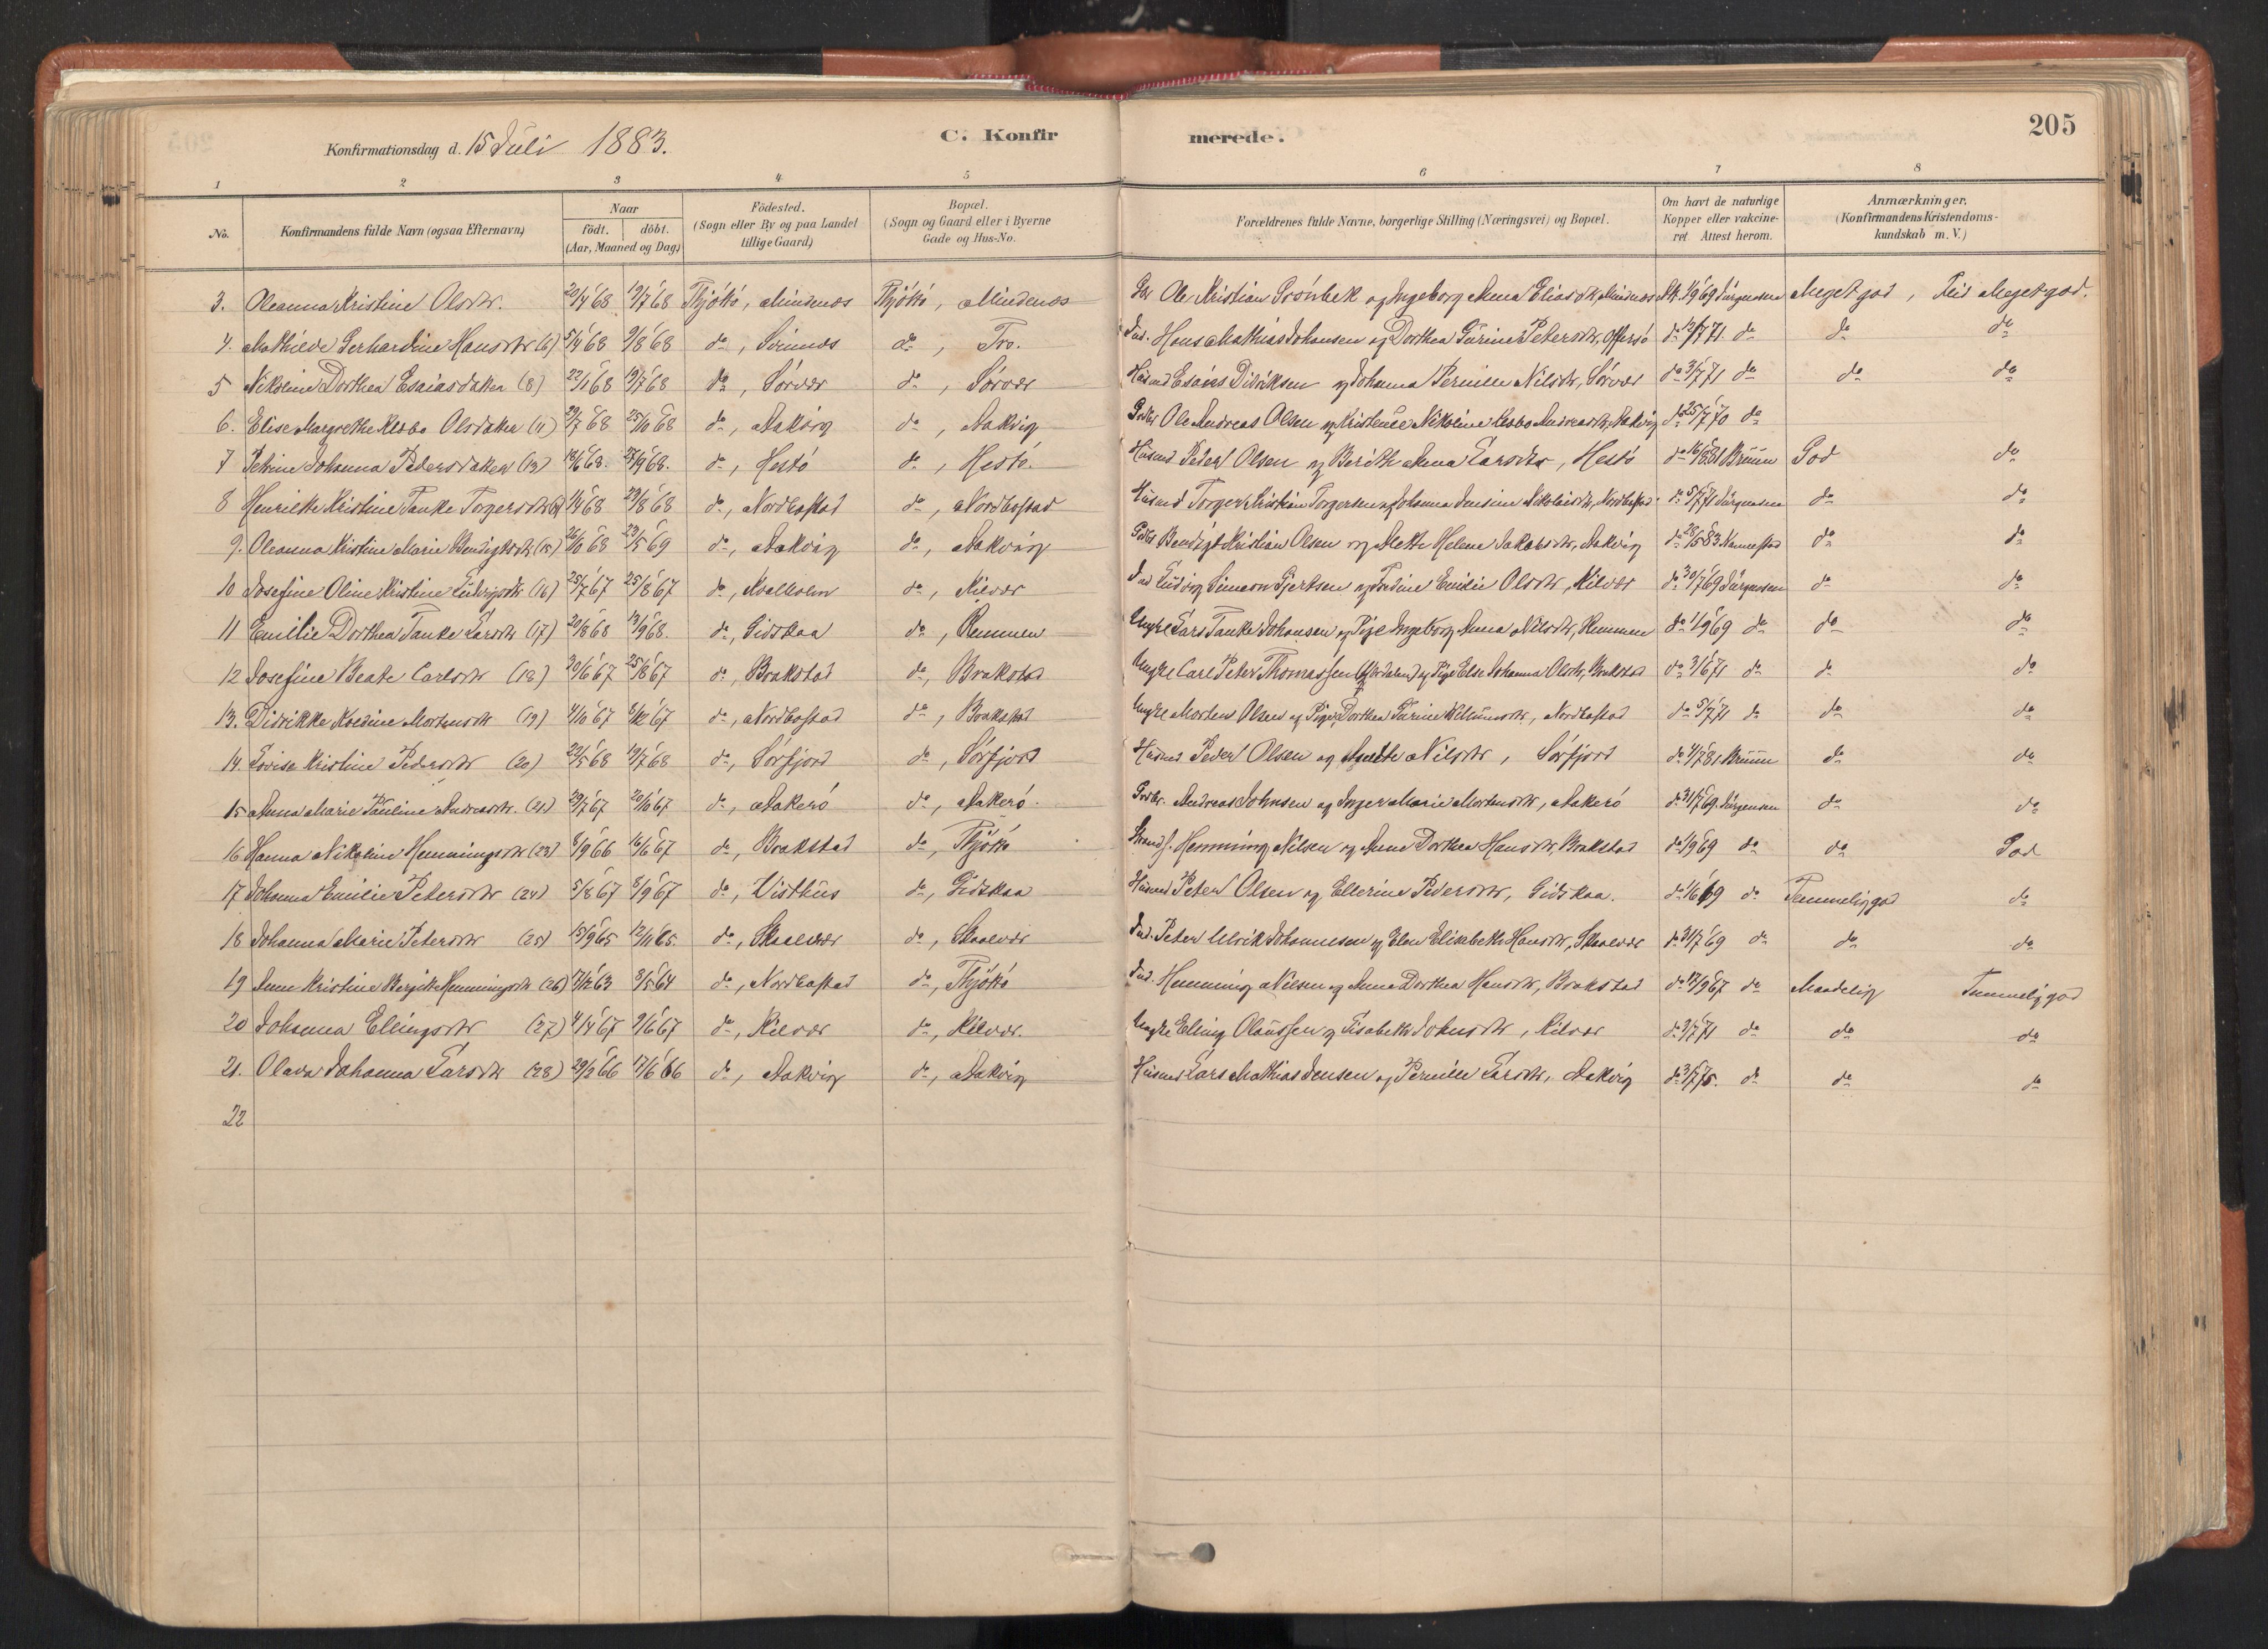 205
C. Konfirmerede.
Konfirmationsdag d. 15 Juli 1883.
1 2 3 4 5 6 7 8
No. Konfirmandens fulde Navn (ogsaa Efternavn) Naar födt. döbt. (Aar, Maaned og Dag) Födested. (Sogn eller By og paa Landet tillige Gaard) Bopæl. (Sogn og Gaard eller i Byerne Gade og Hus-No. Forældrenes fulde Navne, borgerlige Stilling (Næringsvei) og Bopæl. Om havt de naturlige Kopper eller vakcineret Attest herom. Anmærkninger. (Konfirmandens Kristendomskundskab m. V.)
3. Oleanna Kristine Olsdtr. 20/4 68 19/7 68 Thjöttö, Mindenæs Thjöttö, Mindenæs Ole Kristian Grönbek og Ingeborg Anna Eliasdtr, Mindnæs 1/9 69 Jürgensen Meget god, Flid Meget god.
4. Mathilde Gerhardine Hansdtr (6) 5/4 68 9/8 68 do, do, Tro. Ind. Hans Mathias Johansen og Dorthea Karine Petersdtr, Offersö do 12/7 71. do do do
5 Nikoline Dorthea Esaiasdatter (8) 22/1 68 19/7 68 do, Sörvær do, Sörvær Husmd Esaias Didriksen og Johanna Pernille Nilsdtr, Sörvær do 3/7 71 do do do
6. Elise Margrethe Olsdatter (11) 29/7 68 25/10 68 do, Aakvig do, Aakvig Gbr Ole Andreas Olsen og Kristense Nikoline Andreasdtr, Aakvig do 25/7 70 do
7 Petrine Johanna Pedersdatter (13) 18/6 68. 27/9 68. do, Hestö do, Hestö. Husmd Peder Olsen og Berith Anna Larsdtr, Hestö do 16/8 81 Bruun God do
8 Henriette Kristine Tanke Torgersdtr 1/4 68 23/8 68 do, Nordbostad do, Nordbostad Husmd Torger Kristian Torgersen og Johanna Jensine Nikolaisdtr, Nordbostad do 5/7 71 Jürgensen do do
9. Oleanna Kristine Marie Bendigtsdtr (15) 26/10 68 23/5 69 do, Aakvig do, Aakvig Bendigt Kristian Olsen og Mette Helene Jakobsdtr, Aakvig do 28/5 83. do do
10 Josefine Oline Kristine Ludvigsdtr (16) 25/7 67 25/8 67 do, Kvalholm do, Kilvær Ind Ludvig Simeon Gjertsen og Fredine Emilie Olsdtr, Kilvær do 30/7 69 Jürgensen do do
11 Emilie Dorthea Tanke Larsdtr (17) 20/8 68 13/9 68. do, Gidskaa do, Remmen Ungkl Lars Tanke Johansen og Pige Ingeborg Anna Nilsdtr, Remmen do 1/9 69 do do do
12 Josefine Beate Carlsdtr (18) 30/6 67 25/8 67 do, Brakstad do, Brakstad Ungkl Carl Peter Thomassen og Pige Else Johanna Olsdtr, Brakstad do 3/6 71 do do do
13. Didrikke Mortensdtr (19) 4/10 67 8/12 67 do, Nordbostad do, Brakstad Ungkl Morten Olsen og Pige Dorthea Karine, Nordbostad do 5/7 71 do do do
14. Lovise Kristine Pedersdtr (20) 22/5 68 19/7 68 do, Sörfjord do, Sörfjord Husmd Peder Olsen og Nilsdtr, Sörfjord do 4/7 81 Bruun do do
15 Anna Marie Pauline Andreasdtr. (21) 29/7 67 20/10 67 do, Aakerö do, Aakerö. Gbr. Andreas Johnsen og Inger Marie Mortensdtr, Aakerö do 31/7 69. Jürgensen do do
16 Hanna Nikoline Hemmingsdtr (23) 8/9 66 16/6 67 do, Brakstad do, Thjöttö Strands. Hemming Nilsen og Anna Dorthea Hansdtr, Brakstad do 1/9 69 do do God
17 Johanna Emilie Petersdtr (24) 5/8 67 8/9 67 do, Visthus do, Gidskaa Husmd Peter Olsen og Ellerine Pedersdtr, Gidskaa. do 1/6 69 do Temmelig god do
18 Johanna Marie Petersdtr (25) 15/9 65 12/11 65. do, Skaalvær do, Skaalvær Ind. Peter Ulrik Johannesen og Elen Elisabeth Hansdtr, Skaalvær do 31/7 69 do do do
19 Anne Kristine Bergitte Hemmingsdtr (26) 17/12 63 8/5 64 do, Nordbostad do, Thjöttö Ind. Hemming Nilsen og Anna Dorthea Hansdtr, Brakstad do 12/9 67 do Maadelig Temmelig god
20 Johanna Ellingsdtr (27) 4/4 67 9/6 67 do, Kilvær do, Kilvær. Ungkl Elling Olaussen og Lisabeth Johnsdtr, Kilvær do 3/7 71 do do do
21. Olava Johanna Larsdtr (28) 29/3 66 17/6 66 do, Aakvig do, Aakvig Husmd Lars Mathias Jensen og Pernille Larsdtr, Aakvig do 3/7 75. do do do
22